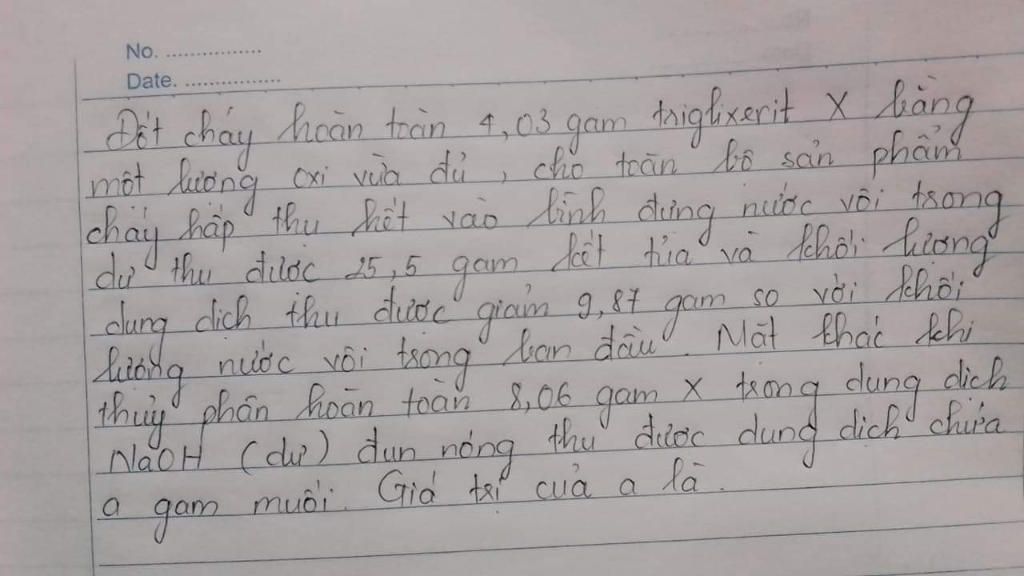 No. ................
Date. ................
Đốt cháy hoàn toàn 4,03 gam triglixerit X bằng
một lượng oxi vừa đủ, cho toàn bộ sản phẩm
cháy hấp thụ hết vào bình đựng nước vôi trong
dư thu được 25,5 gam kết tủa và khối lượng
dung dịch thu được giảm 9,87 gam so với khối
lượng nước vôi trong ban đầu. Mặt khác khi
thủy phân hoàn toàn 8,06 gam X trong dung dịch
NaOH (dư) đun nóng thu được dung dịch chứa
a gam muối. Giá trị của a là.